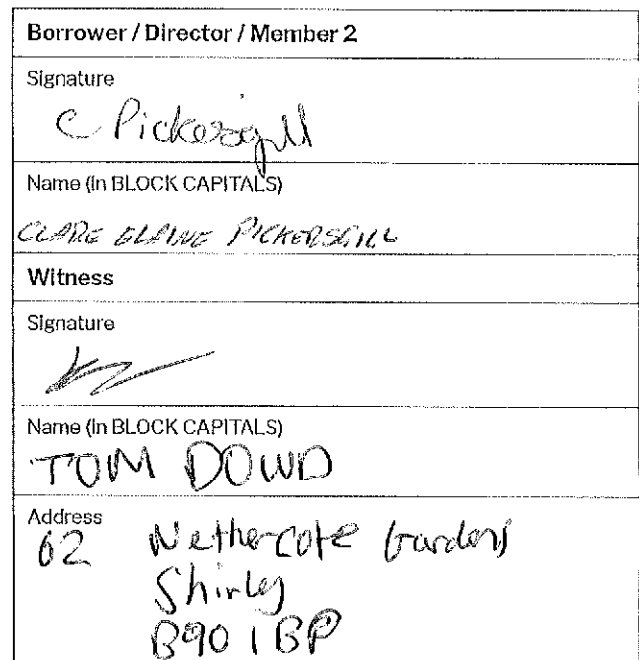 Borrower / Director / Member 2
Signature
C Pickersgill
Name (in BLOCK CAPITALS)
CLARE ELAINE PICKERSGILL
Witness
Signature
Name (in BLOCK CAPITALS)
TOM DOWD
Address
62 Nethercote Gardens
Shirley
B90 1BP